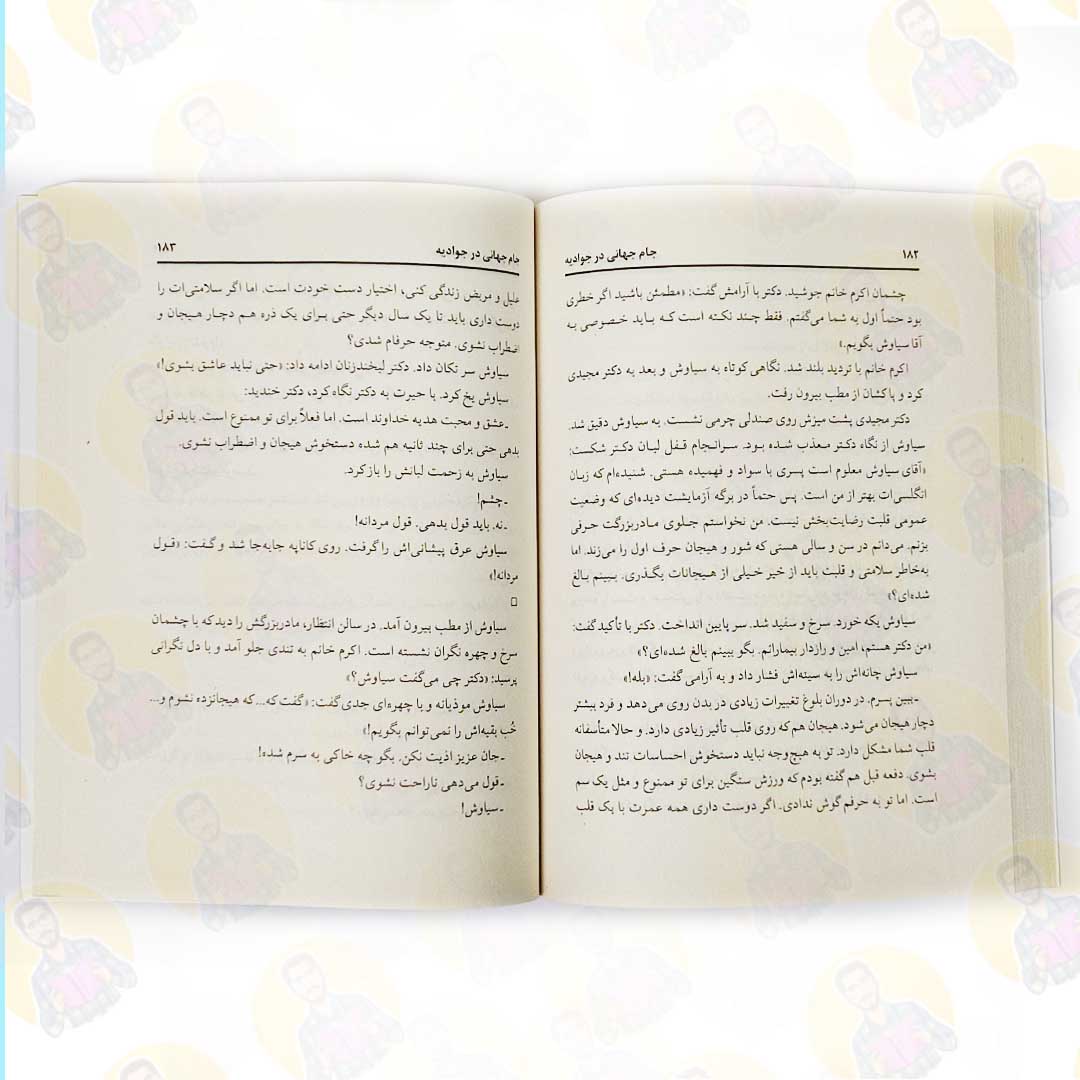 ۱۸۲
جام جهانی در جوادیه
چشمان اکرم خانم جوشید. دکتر با آرامش گفت: «مطمئن باشید اگر خطری
بود حتماً اول به شما می‌گفتم. فقط چند نکته است که باید خصوصی به
آقا سیاوش بگویم.»
اکرم خانم با تردید بلند شد. نگاهی کوتاه به سیاوش و بعد به دکتر مجیدی
کرد و پاکشان از مطب بیرون رفت.
دکتر مجیدی پشت میزش روی صندلی چرمی نشست. به سیاوش دقیق شد.
سیاوش از نگاه دکتر معذب شده بود. سرانجام قفل لبان دکتر شکست:
«آقای سیاوش معلوم است پسری با سواد و فهمیده هستی. شنیده‌ام که زبان
انگلسی‌ات بهتر از من است. پس حتماً در برگه آزمایشت دیده‌ای که وضعیت
عمومی قلبت رضایت‌بخش نیست. من نخواستم جلوی مادربزرگت حرفی
بزنم. می‌دانم در سن و سالی هستی که شور و هیجان حرف اول را می‌زند. اما
به‌خاطر سلامتی و قلبت باید از خیر خیلی از هیجانات بگذری. ببینم بالغ
شده‌ای؟»
سیاوش یکه خورد. سرخ و سفید شد. سر پایین انداخت. دکتر با تأکید گفت:
«من دکتر هستم، امین و رازدار بیمارانم. بگو ببینم بالغ شده‌ای؟»
سیاوش چانه‌اش را به سینه‌اش فشار داد و به آرامی گفت: «بله!»
ـ ببین پسرم. در دوران بلوغ تغییرات زیادی در بدن روی می‌دهد و فرد بیشتر
دچار هیجان می‌شود. هیجان هم که روی قلب تأثیر زیادی دارد. و حالا متأسفانه
قلب شما مشکل دارد. تو به هیچ‌وجه نباید دستخوش احساسات تند و هیجان
بشوی. دفعه قبل هم گفته بودم که ورزش سنگین برای تو ممنوع و مثل یک سم
است. اما تو به حرفم گوش ندادی. اگر دوست داری همه عمرت با یک قلب
جام جهانی در جوادیه
۱۸۳
علیل و مریض زندگی کنی، اختیار دست خودت است. اما اگر سلامتی‌ات را
دوست داری باید تا یک سال دیگر حتی برای یک ذره هم دچار هیجان و
اضطراب نشوی. متوجه حرفام شدی؟
سیاوش سر تکان داد. دکتر لبخندزنان ادامه داد: «حتی نباید عاشق بشوی!»
سیاوش یخ کرد. با حیرت به دکتر نگاه کرد، دکتر خندید:
ـ عشق و محبت هدیه خداوند است. اما فعلاً برای تو ممنوع است. باید قول
بدهی حتی برای چند ثانیه هم شده دستخوش هیجان و اضطراب نشوی.
سیاوش به زحمت لبانش را باز کرد.
ـ چشم!
ـ نه. باید قول بدهی. قول مردانه!
سیاوش عرق پیشانی‌اش را گرفت. روی کاناپه جابه‌جا شد و گفت: «قول
مردانه!»
سیاوش از مطب بیرون آمد. در سالن انتظار، مادربزرگش را دید که با چشمان
سرخ و چهره نگران نشسته است. اکرم خانم به تندی جلو آمد و با دل نگرانی
پرسید: «دکتر چی می‌گفت سیاوش؟»
سیاوش موذیانه و با چهره‌ای جدی گفت: «گفت که... که هیجانزده نشوم و...
خُب بقیه‌اش را نمی‌توانم بگویم!»
ـ جان عزیز اذیت نکن. بگو چه خاکی به سرم شده!
ـ قول می‌دهی ناراحت نشوی؟
ـ سیاوش!